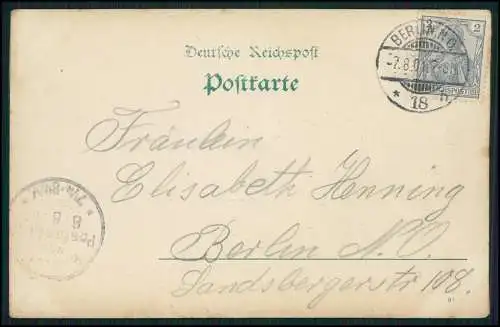 Deutsche Reichspost
Postkarte
2
BERLIN N.O.
-7.8.0
* 18 h
Fräulein
Elisabeth Henning
Berlin N.O.
Landsbergerstr 108.
7½-8¼V
8 8